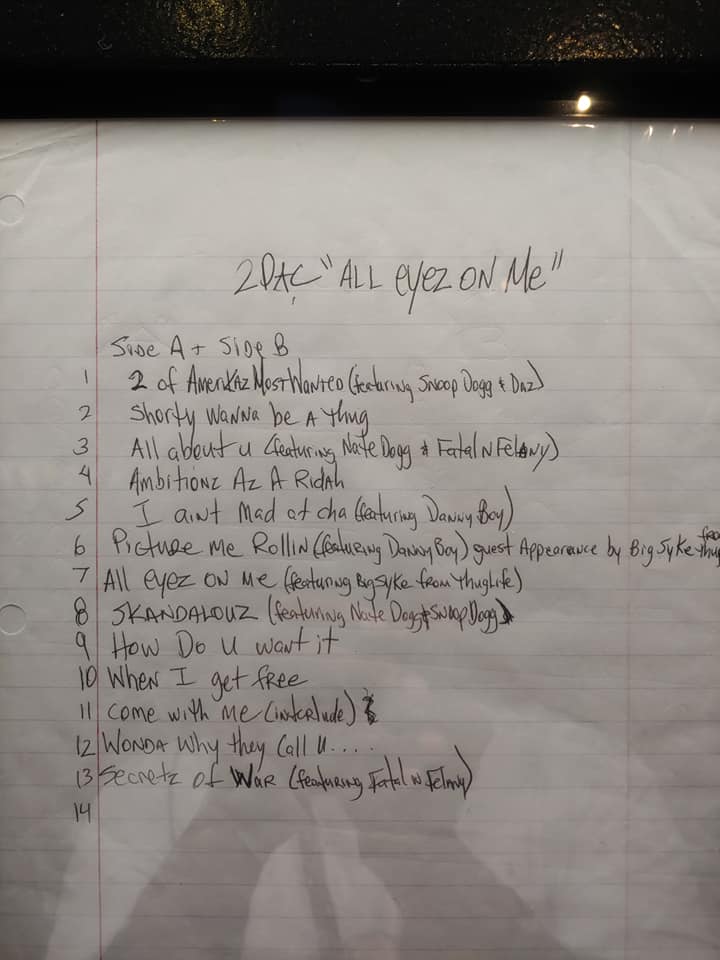 2PAC "ALL eyez ON Me"
Side A + Side B
1 2 of AmeriKaz Most Wanted (featuring Snoop Dogg & Daz)
2 Shorty Wanna be A thug
3 All about u (featuring Nate Dogg & Fatal N Felony)
4 Ambitionz Az A Ridah
5 I aint mad at cha (featuring Danny Boy)
6 Picture me Rollin (featuring Danny Boy) guest Appearance by Big Syke from thug
7 All eyez on me (featuring Big Syke from thuglife)
8 SKANDALOUZ (featuring Nate Dogg & Snoop Dogg)
9 How Do U want it
10 When I get free
11 Come with me (interlude)
12 Wonda Why they Call U....
13 Secretz of War (featuring Fatal N Felony)
14